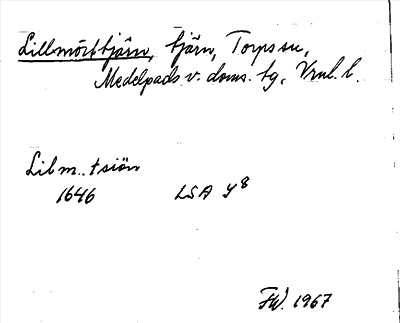 Lillmörttjärn, tjärn, Torps sn,
Medelpads v. doms. tg, Vrnl. l.
Lilm..tsiön
1646 LSA Y8
FW. 1967